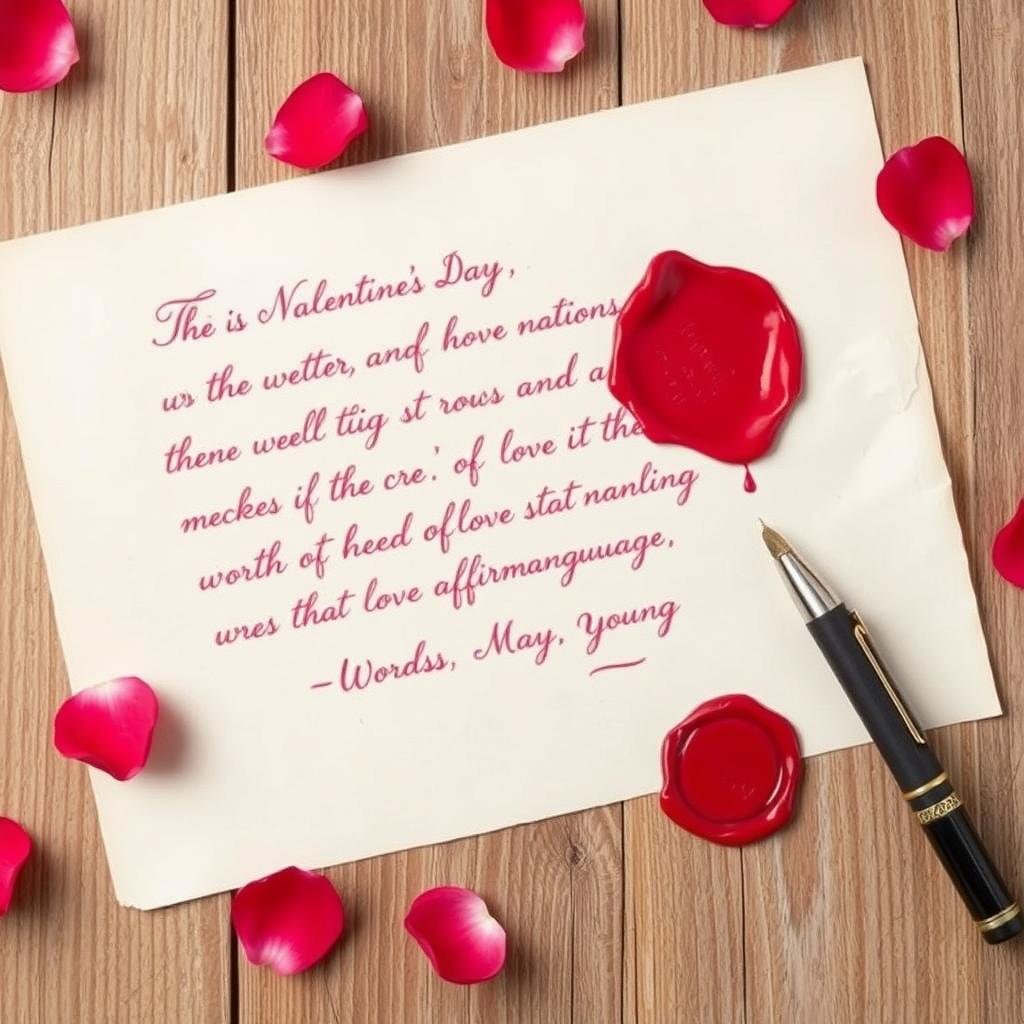 The is Nalentine's Day,
us the wetter, and hove nations
thene weell tiig st rows and a
meckes if the cre.' of love it the
worth of heed of love stat nanling
wres that love affirmanguuage,
–Wordss, May, Young